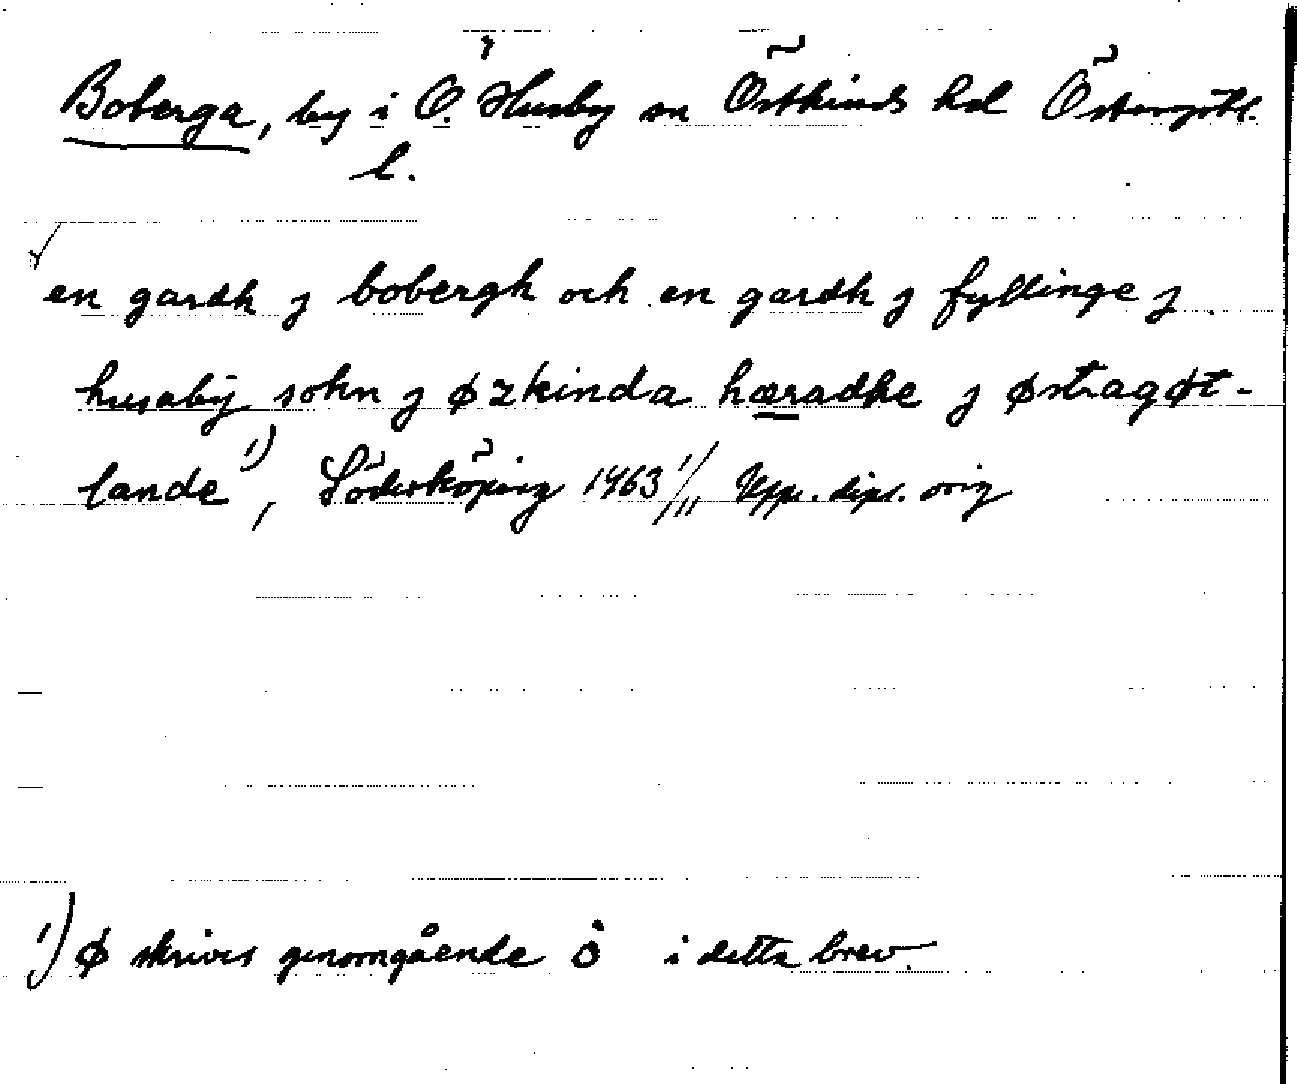 Boberga, by i Ö. Husby sn Östkinds hd Östergötl.
l.
en gardh j bobergh och en gardh j fyllinge j
husabÿ sokn j øzkinda hæradhe j østragøt-
lande 1), Söderköping 1463 1/11 Upps. dipl. orig
1) ø skrives genomgående ȯ i detta brev.